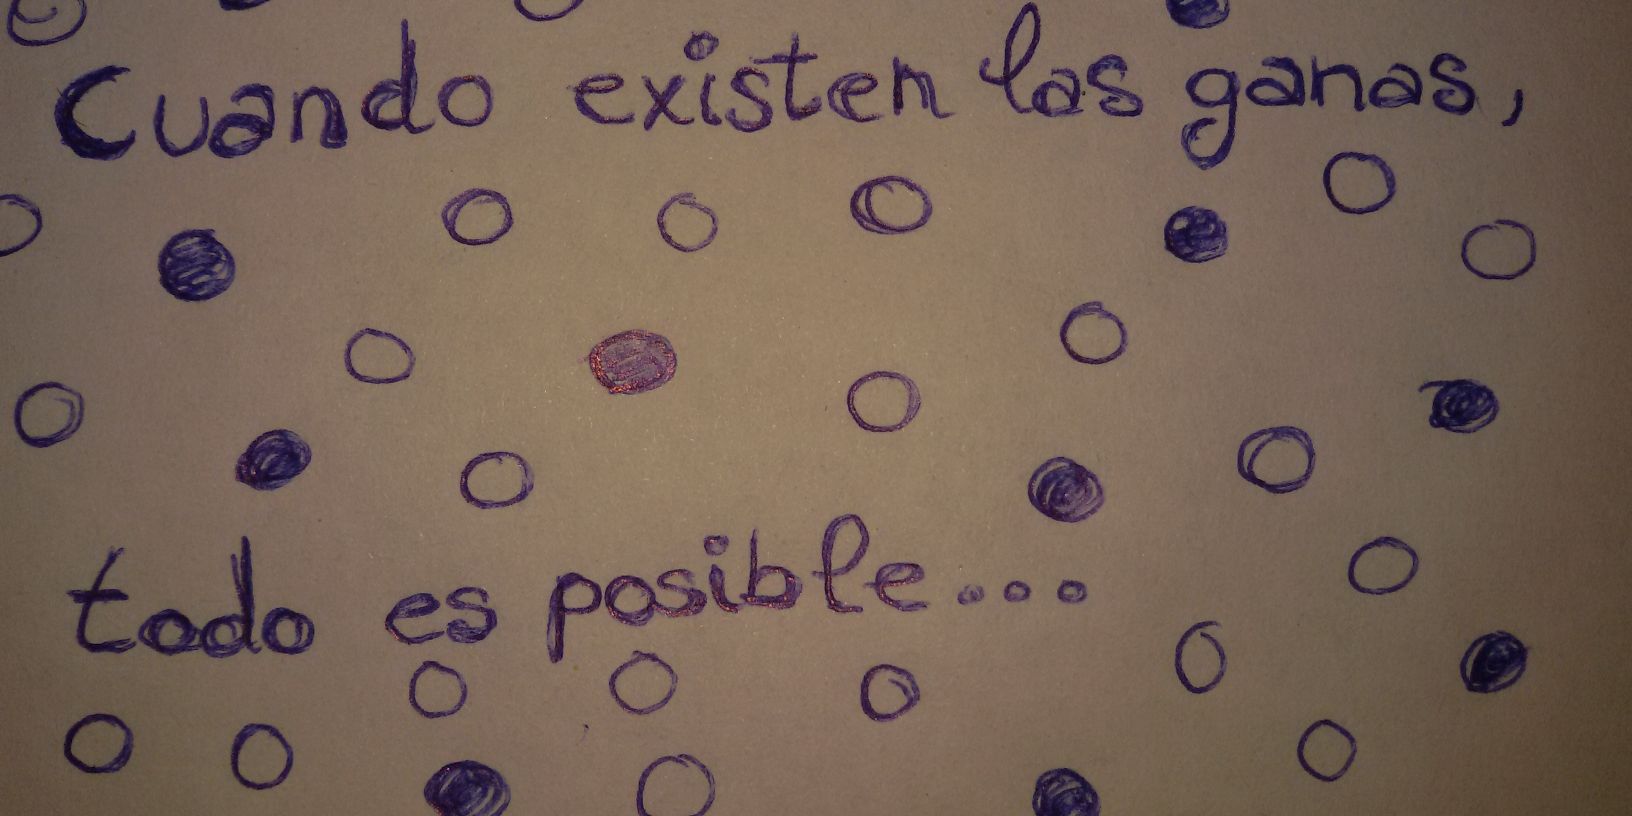 Cuando existen las ganas,
todo es posible...